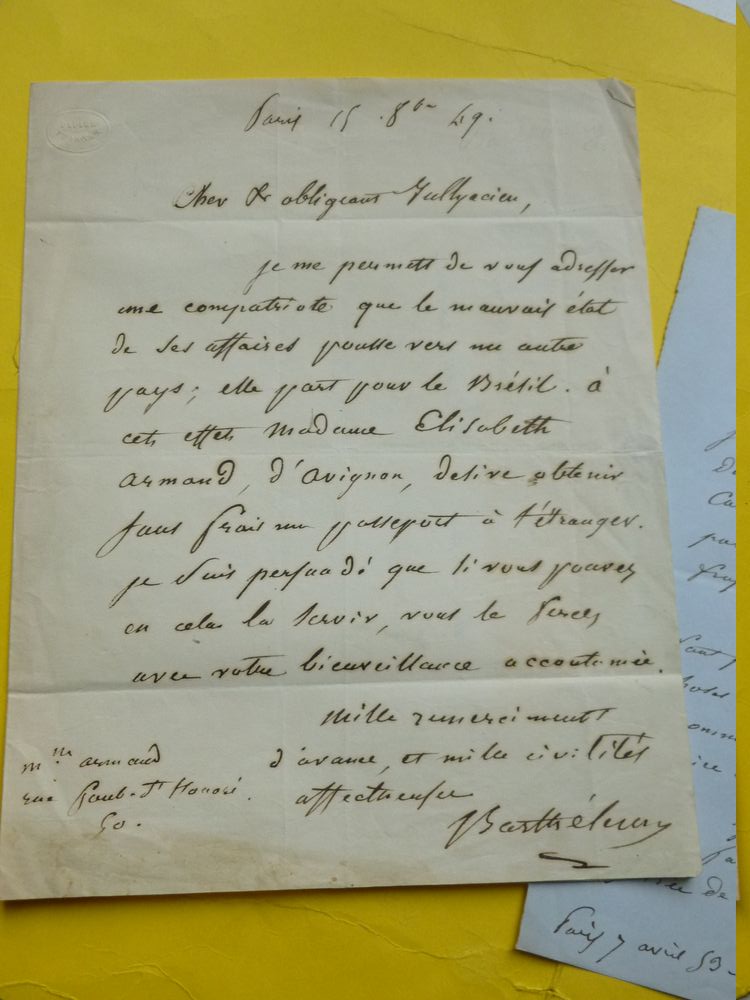 Paris 15 8bre 49.
Cher & obligeant Jullyacien,
je me permets de vous adresser
une compatriote que le mauvais état
de ses affaires pousse vers un autre
pays; elle part pour le Brésil. à
cet effet Madame Elisabeth
armand, d'avignon, desire obtenir
sans frais un passeport à l'étranger.
je suis persuadé que si vous pouvez
en cela la servir, vous le ferez
avec votre bienveillance accoutumée.
Mille remerciments
d'avance, et mille civilités
affectueuses
Barthélemy
mme armand
rue Faub. St Honoré.
50.
de
Paris 7 avril 59